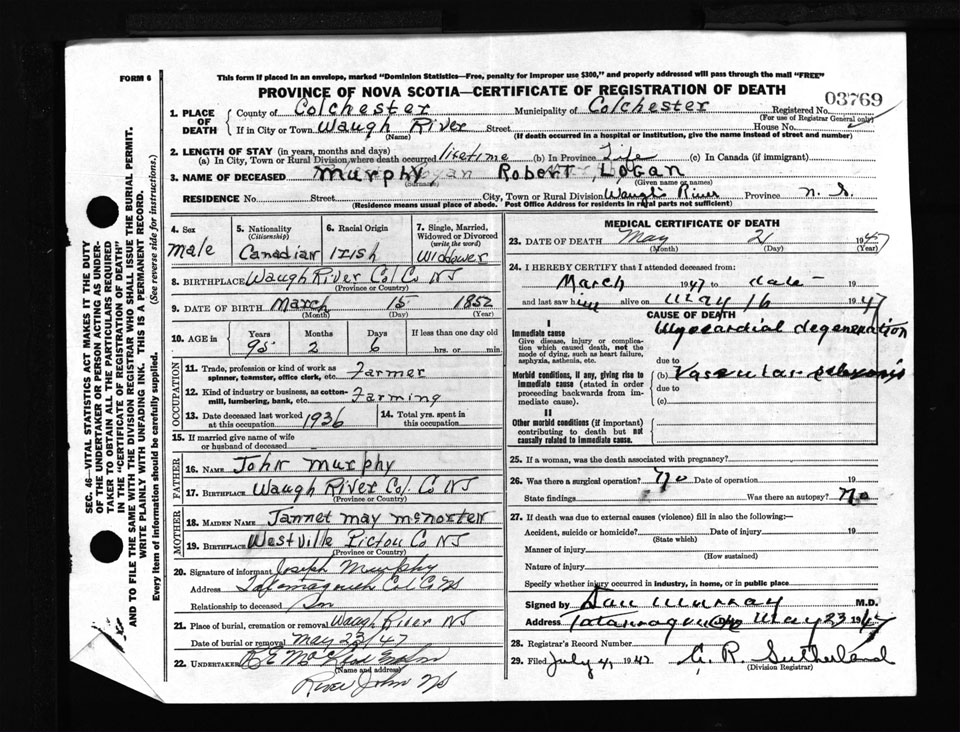 FORM 6
This form if placed in an envelope, marked "Dominion Statistics—Free, penalty for improper use $300," and properly addressed will pass through the mail "FREE"
PROVINCE OF NOVA SCOTIA—CERTIFICATE OF REGISTRATION OF DEATH
03769
1. PLACE OF DEATH
County of Colchester Municipality of Colchester Registered No.
(For use of Registrar General only)
If in City or Town Waugh River Street House No.
(Name) (If death occurred in a hospital or institution, give name instead of street and number)
2. LENGTH OF STAY (in years, months and days)
(a) In City, Town or Rural Division where death occurred lifetime (b) In Province Life (c) In Canada (if immigrant)
3. NAME OF DECEASED Murphy Robert Logan
(Surname) (Given name or names)
RESIDENCE No. Street City, Town or Rural Division Waugh River Province N. S.
(Residence means usual place of abode. Post Office Address for residents in rural parts not sufficient)
4. Sex
Male
5. Nationality
(Citizenship)
Canadian
6. Racial Origin
Irish
7. Single, Married, Widowed or Divorced
(write the word)
Widower
8. BIRTHPLACE Waugh River Col Co NS
(Province or Country)
9. DATE OF BIRTH March 15 1852
(Month) (Day) (Year)
10. AGE in
Years Months Days If less than one day old
95 2 6 hrs. or min.
OCCUPATION
11. Trade, profession or kind of work as spinner, teamster, office clerk, etc. Farmer
12. Kind of industry or business, as cotton-mill, lumbering, bank, etc. Farming
13. Date deceased last worked at this occupation 1936
14. Total yrs. spent in this occupation
15. If married give name of wife or husband of deceased
FATHER
16. NAME John Murphy
17. BIRTHPLACE Waugh River Col. Co NS
(Province or Country)
MOTHER
18. MAIDEN NAME Jannet May
19. BIRTHPLACE Westville Pictou Co NS
(Province or Country)
20. Signature of informant Joseph Murphy
Address Tatamagouche Col Co NS
Relationship to deceased Son
21. Place of burial, cremation or removal Waugh River NS
Date of burial or removal May 23/47
22. UNDERTAKER
(Name and address)
River John NS
MEDICAL CERTIFICATE OF DEATH
23. DATE OF DEATH May 21 1947
(Month) (Day)
24. I HEREBY CERTIFY that I attended deceased from:
March 1947 to date
and last saw him alive on May 16 1947
CAUSE OF DEATH
I
Immediate cause
Give disease, injury or complication which caused death, not the mode of dying, such as heart failure, asphyxia, asthenia, etc.
Myocardial degeneration
due to
Morbid conditions, if any, giving rise to immediate cause (stated in order proceeding backwards from immediate cause).
(b) Vascular sclerosis
due to
(c)
II
Other morbid conditions (if important) contributing to death but not causally related to immediate cause.
25. If a woman, was the death associated with pregnancy?
26. Was there a surgical operation? No Date of operation 19
State findings Was there an autopsy? No
27. If death was due to external causes (violence) fill in also the following:—
Accident, suicide or homicide? Date of injury 19
(State which)
Manner of injury
(How sustained)
Nature of injury
Specify whether injury occurred in industry, in home, or in public place
Signed by Dan Murray M.D.
Address Tatamagouche May 23 1947
28. Registrar's Record Number
29. Filed July 4, 1947 G. R. Sutherland
(Division Registrar)
SEC. 46—VITAL STATISTICS ACT MAKES IT THE DUTY
OF THE UNDERTAKER OR PERSON ACTING AS UNDER-
TAKER TO OBTAIN ALL THE PARTICULARS REQUIRED
IN THE "CERTIFICATE OF REGISTRATION OF DEATH"
AND TO FILE THE SAME WITH THE DIVISION REGISTRAR WHO SHALL ISSUE THE BURIAL PERMIT.
WRITE PLAINLY WITH UNFADING INK. THIS IS A PERMANENT RECORD.
Every item of information should be carefully supplied. (See reverse side for instructions.)